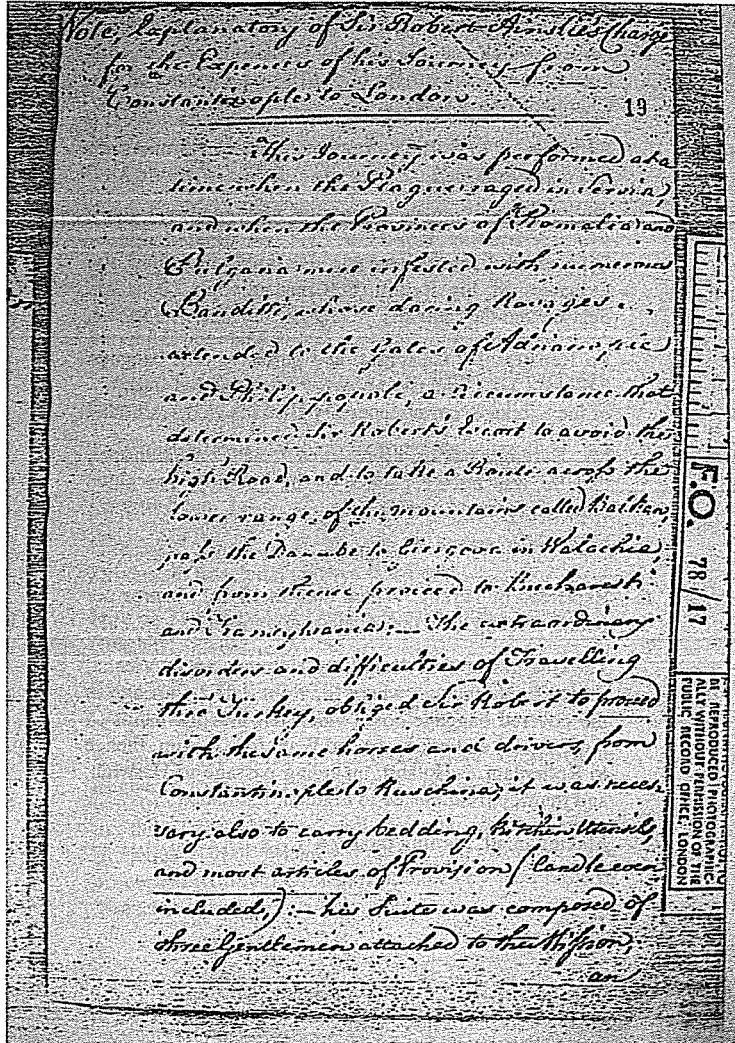 Note, Explanatory of Sir Robert Ainslie's Charge
for the Expences of his Journey from
Constantinople to London
19
This Journey was performed at a
time when the Plague raged in Servia,
and when the Provinces of Romalia and
Bulgaria were infested with numerous
Banditti, whose daring Ravages
extended to the Gates of Adrianople
and Philippopoli, a Circumstance that
determined Sir Robert's Escort to avoid the
high Road, and to take a Route across the
lower range of the mountains called Balkan,
pass the Danube to Giurgeve in Walachia,
and from thence proceed to Bucharest
and Transylvania:— The extraordinary
disorders and difficulties of Travelling
thro' Turkey, obliged Sir Robert to proceed
with the same horses and drivers, from
Constantinople to Ruschine; it was neces-
sary also to carry bedding, kitchin Utensils,
and most articles of Provision (Candle even
included;) :— his Suite was composed of
three Gentlemen attached to the Mission,
an
F.O. 78/17
BE REPRODUCED PHOTOGRAPHIC-
ALLY WITHOUT PERMISSION OF THE
PUBLIC RECORD OFFICE, LONDON